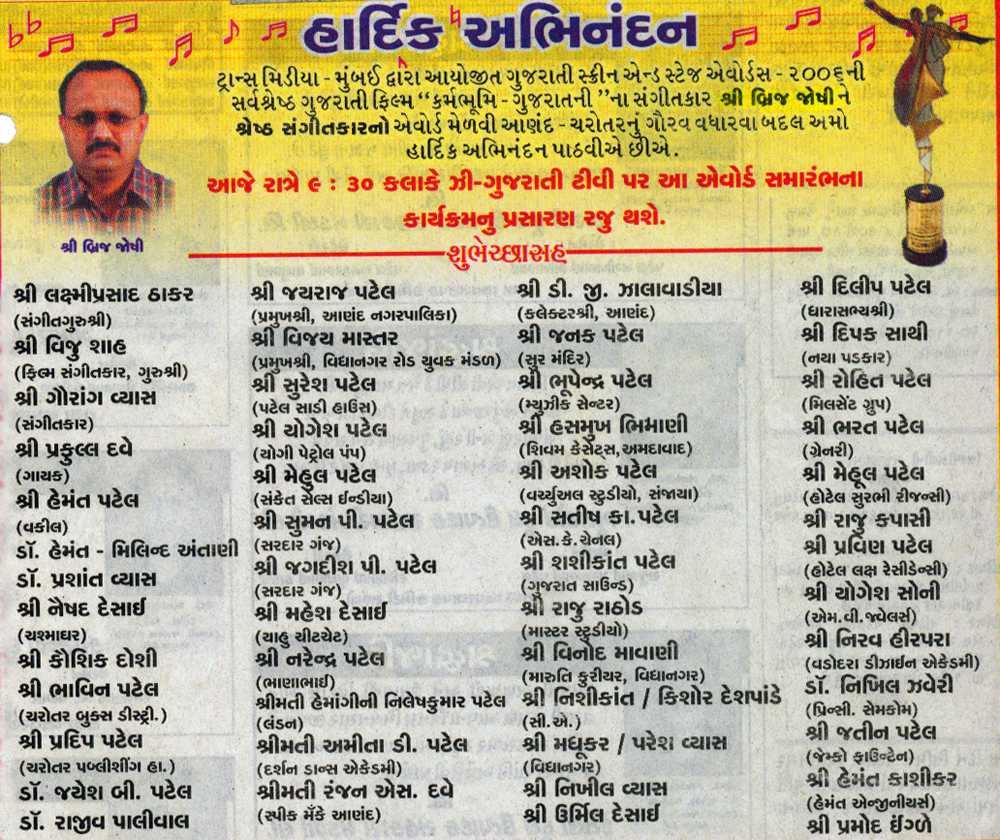 હાર્દિક અભિનંદન
ટ્રાન્સ મિડીયા - મુંબઈ દ્વારા આયોજીત ગુજરાતી સ્ક્રીન એન્ડ સ્ટેજ એવોર્ડસ - ૨૦૦૬ની
સર્વશ્રેષ્ઠ ગુજરાતી ફિલ્મ “કર્મભૂમિ - ગુજરાતની”ના સંગીતકાર શ્રી બ્રિજ જોષીને
શ્રેષ્ઠ સંગીતકારનો એવોર્ડ મેળવી આણંદ - ચરોતરનું ગૌરવ વધારવા બદલ અમો
હાર્દિક અભિનંદન પાઠવીએ છીએ.
આજે રાત્રે ૯ : ૩૦ કલાકે ઝી-ગુજરાતી ટીવી પર આ એવોર્ડ સમારંભના
કાર્યક્રમનુ પ્રસારણ રજુ થશે.
શ્રી બ્રિજ જોષી
શુભેચ્છાસહ
શ્રી લક્ષ્મીપ્રસાદ ઠાકર
(સંગીતગુરુશ્રી)
શ્રી વિજુ શાહ
(ફિલ્મ સંગીતકાર, ગુરુશ્રી)
શ્રી ગૌરાંગ વ્યાસ
(સંગીતકાર)
શ્રી પ્રફુલ્લ દવે
(ગાયક)
શ્રી હેમંત પટેલ
(વકીલ)
ડૉ. હેમંત - મિલિન્દ અંતાણી
ડૉ. પ્રશાંત વ્યાસ
શ્રી નૈષદ દેસાઈ
(ચશ્માઘર)
શ્રી કૌશિક દોશી
શ્રી ભાવિન પટેલ
(ચરોતર બુક્સ ડીસ્ટ્રી.)
શ્રી પ્રદિપ પટેલ
(ચરોતર પબ્લીશીંગ હા.)
ડૉ. જયેશ બી. પટેલ
ડૉ. રાજીવ પાલીવાલ
શ્રી જયરાજ પટેલ
(પ્રમુખશ્રી, આણંદ નગરપાલિકા)
શ્રી વિજય માસ્તર
(પ્રમુખશ્રી, વિદ્યાનગર રોડ યુવક મંડળ)
શ્રી સુરેશ પટેલ
(પટેલ સાડી હાઉસ)
શ્રી યોગેશ પટેલ
(યોગી પેટ્રોલ પંપ)
શ્રી મેહુલ પટેલ
(સંકેત સેલ્સ ઈન્ડીયા)
શ્રી સુમન પી. પટેલ
(સરદાર ગંજ)
શ્રી જગદીશ પી. પટેલ
(સરદાર ગંજ)
શ્રી મહેશ દેસાઈ
(યાહુ ચીટચેટ)
શ્રી નરેન્દ્ર પટેલ
(ભાણાભાઈ)
શ્રીમતી હેમાંગીની નિલેષકુમાર પટેલ
(લંડન)
શ્રીમતી અમીતા ડી. પટેલ
(દર્શન ડાન્સ એકેડમી)
શ્રીમતી રંજન એસ. દવે
(સ્પીક મૅકે આણંદ)
શ્રી ડી. જી. ઝાલાવાડીયા
(કલેક્ટરશ્રી, આણંદ)
શ્રી જનક પટેલ
(સુર મંદિર)
શ્રી ભૂપેન્દ્ર પટેલ
(મ્યુઝીક સેન્ટર)
શ્રી હસમુખ ભિમાણી
(શિવમ કેસેટ્સ, અમદાવાદ)
શ્રી અશોક પટેલ
(વર્ચ્યુઅલ સ્ટુડીયો, સંજાયા)
શ્રી સતીષ કા. પટેલ
(એસ.કે. ચેનલ)
શ્રી શશીકાંત પટેલ
(ગુજરાત સાઉન્ડ)
શ્રી રાજુ રાઠોડ
(માસ્ટર સ્ટુડીયો)
શ્રી વિનોદ માવાણી
(મારુતિ કુરીયર, વિદ્યાનગર)
શ્રી નિશીકાંત / કિશોર દેશપાંડે
(સી. એ.)
શ્રી મધૂકર / પરેશ વ્યાસ
(વિદ્યાનગર)
શ્રી નિખીલ વ્યાસ
શ્રી ઉર્મિલ દેસાઈ
શ્રી દિલીપ પટેલ
(ધારાસભ્યશ્રી)
શ્રી દિપક સાથી
(નયા પડકાર)
શ્રી રોહિત પટેલ
(મિલસેંટ ગ્રુપ)
શ્રી ભરત પટેલ
(ગ્રેનરી)
શ્રી મેહૂલ પટેલ
(હોટેલ સુરભી રીજન્સી)
શ્રી રાજુ કપાસી
શ્રી પ્રવિણ પટેલ
(હોટેલ લક્ષ રેસીડેન્સી)
શ્રી યોગેશ સોની
(એમ.વી.જ્વેલર્સ)
શ્રી નિરવ હીરપરા
(વડોદરા ડીઝાઈન એકેડમી)
ડૉ. નિખિલ ઝવેરી
(પ્રિન્સી. સેમકોમ)
શ્રી જતીન પટેલ
(જેમ્કો ફાઉન્ટેન)
શ્રી હેમંત કાશીકર
(હેમંત એન્જીનીયર્સ)
શ્રી પ્રમોદ ઈંગ્ળે